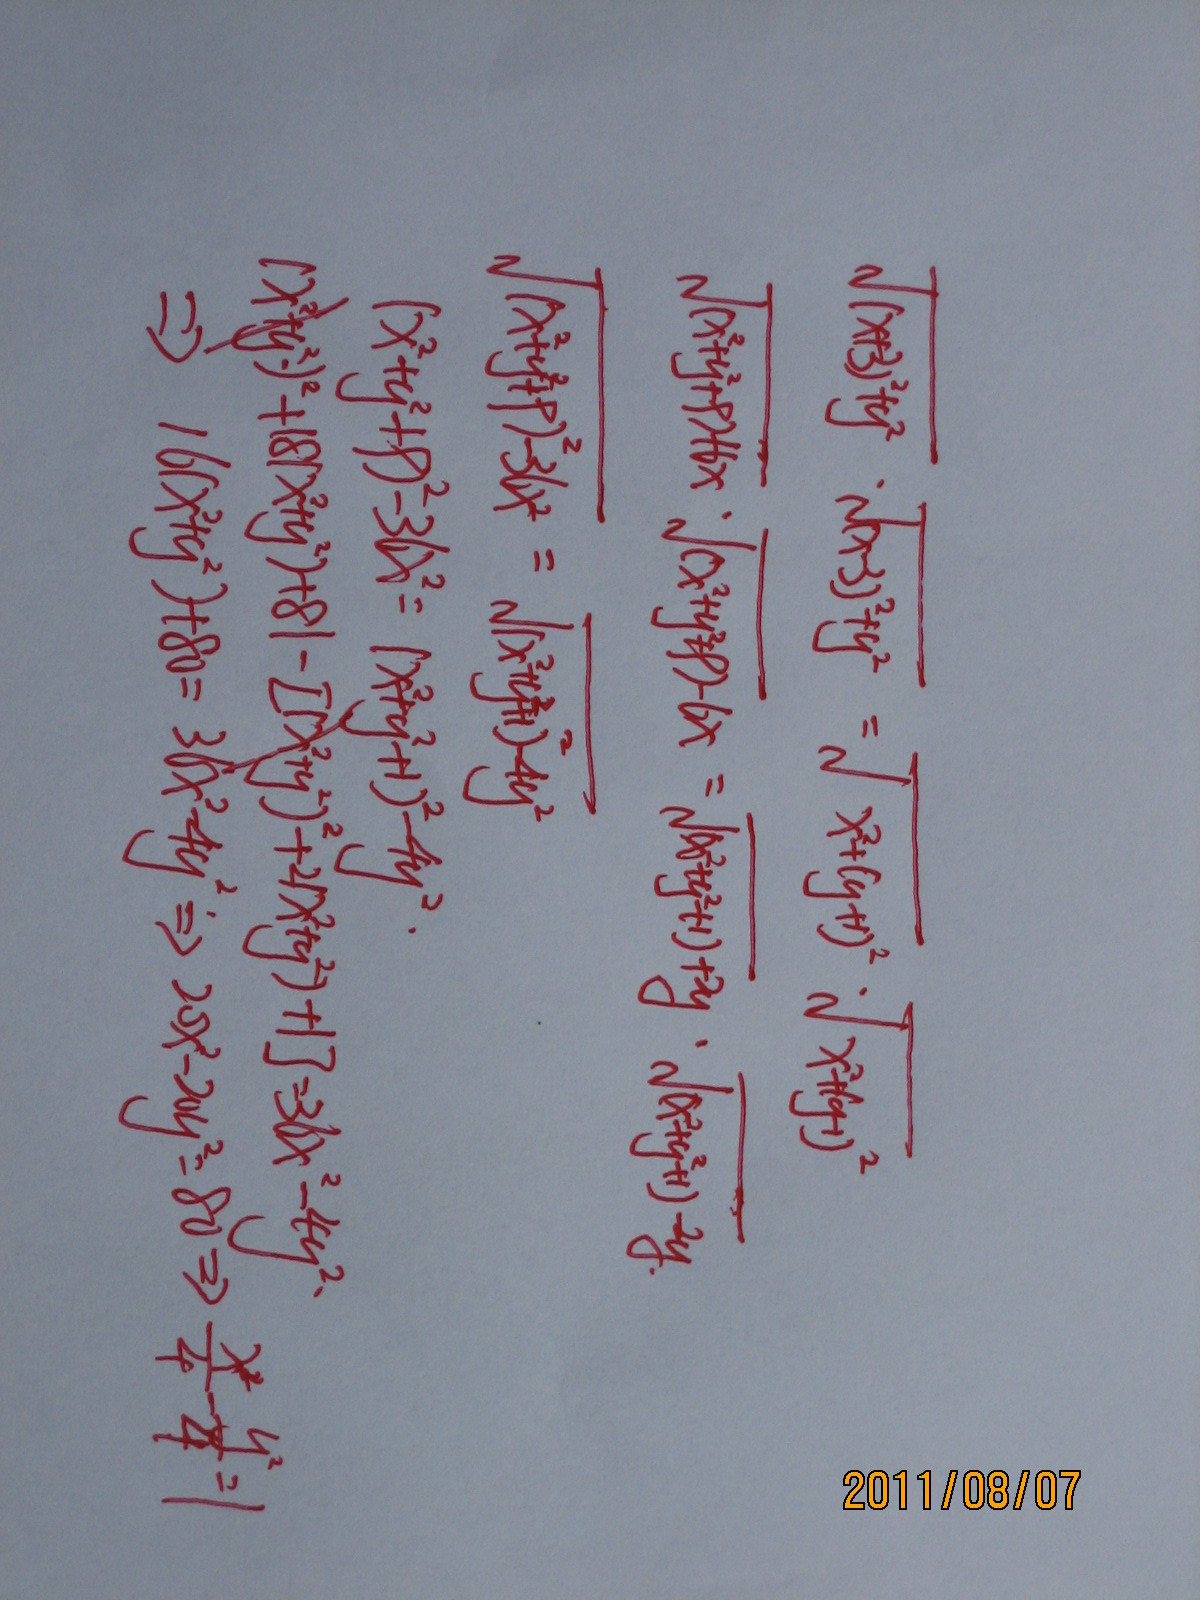 √((x+3)²+y²) · √((x-3)²+y²) = √(x²+(y+1)²) · √(x²+(y-1)²)
√((x²+y²+9)+6x) · √((x²+y²+9)-6x) = √((x²+y²+1)+2y) · √((x²+y²+1)-2y).
√((x²+y²+9)²-36x²) = √((x²+y²+1)²-4y²)
(x²+y²+9)²-36x² = (x²+y²+1)²-4y².
(x²+y²)²+18(x²+y²)+81-[(x²+y²)²+2(x²+y²)+1]=36x²-4y².
⇒ 16(x²+y²)+80=36x²-4y² ⇒ 20x²-20y²=80 ⇒ x²/4 - y²/4 = 1
2011/08/07